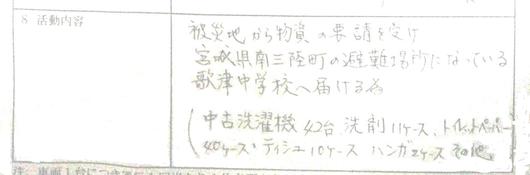 8. 活動内容
被災地から物資の要請を受け
宮城県南三陸町の避難場所になっている
歌津中学校へ届ける為
(中古洗濯機 42台 洗剤11ケース、トイレットペーパー
40ケース・ティシュ10ケース ハンガ2ケース その他